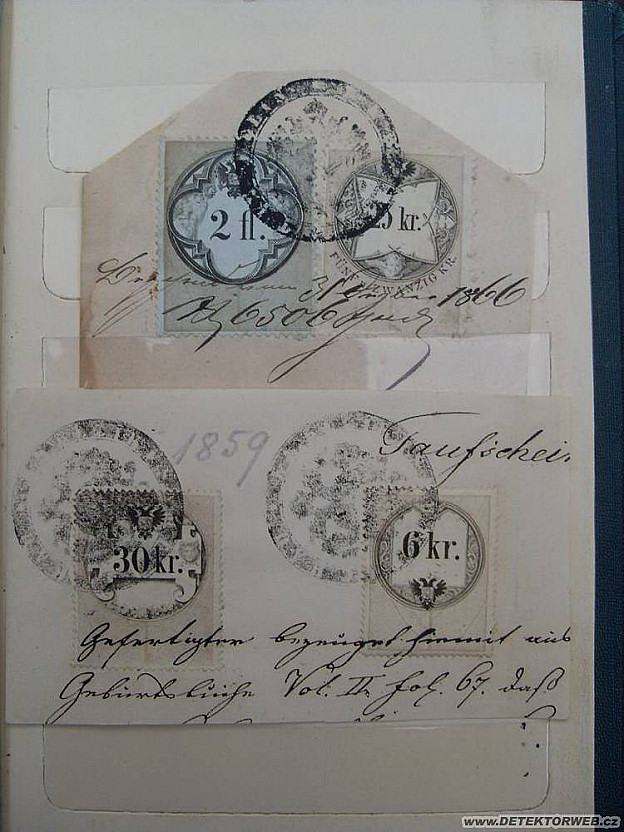 2 fl.
25 kr.
FÜNFUNDZWANZIG KR.
1866
6506
1859
Taufschein
30 kr.
6 kr.
Gefertigter bezeuget hiemit aus
Geburtsbuche Vol. II. fol. 67. daß
www.DETEKTORWEB.cz